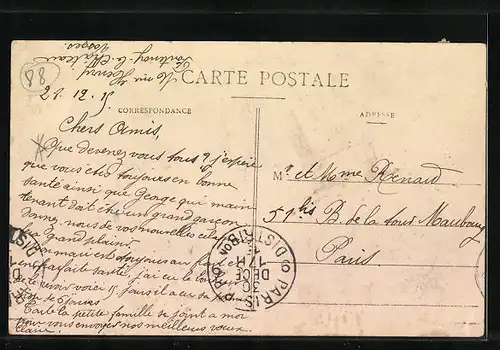 88
Fontenoy-le-Château
Vosges.
CARTE POSTALE
CORRESPONDANCE
ADRESSE
Chers Amis,
Que devenez vous tous? j'espère
que vous êtes toujours en bonne
santé ainsi que George qui main
tenant doit être un grand garçon
donne nous de vos nouvelles cela
grand plaisir
mari est toujours au
en parfaite santé, j'ai eu le bonheur
de le revoir voici 15 jours il a eu sa
de 6 jours
Toute la petite famille se joint à moi
pour vous envoyer nos meilleurs vœux
Mr et Mme Renaud
51 bis B. de la tour Maubourg
Paris
PARIS
DISTRIBON
17H
30
DECE